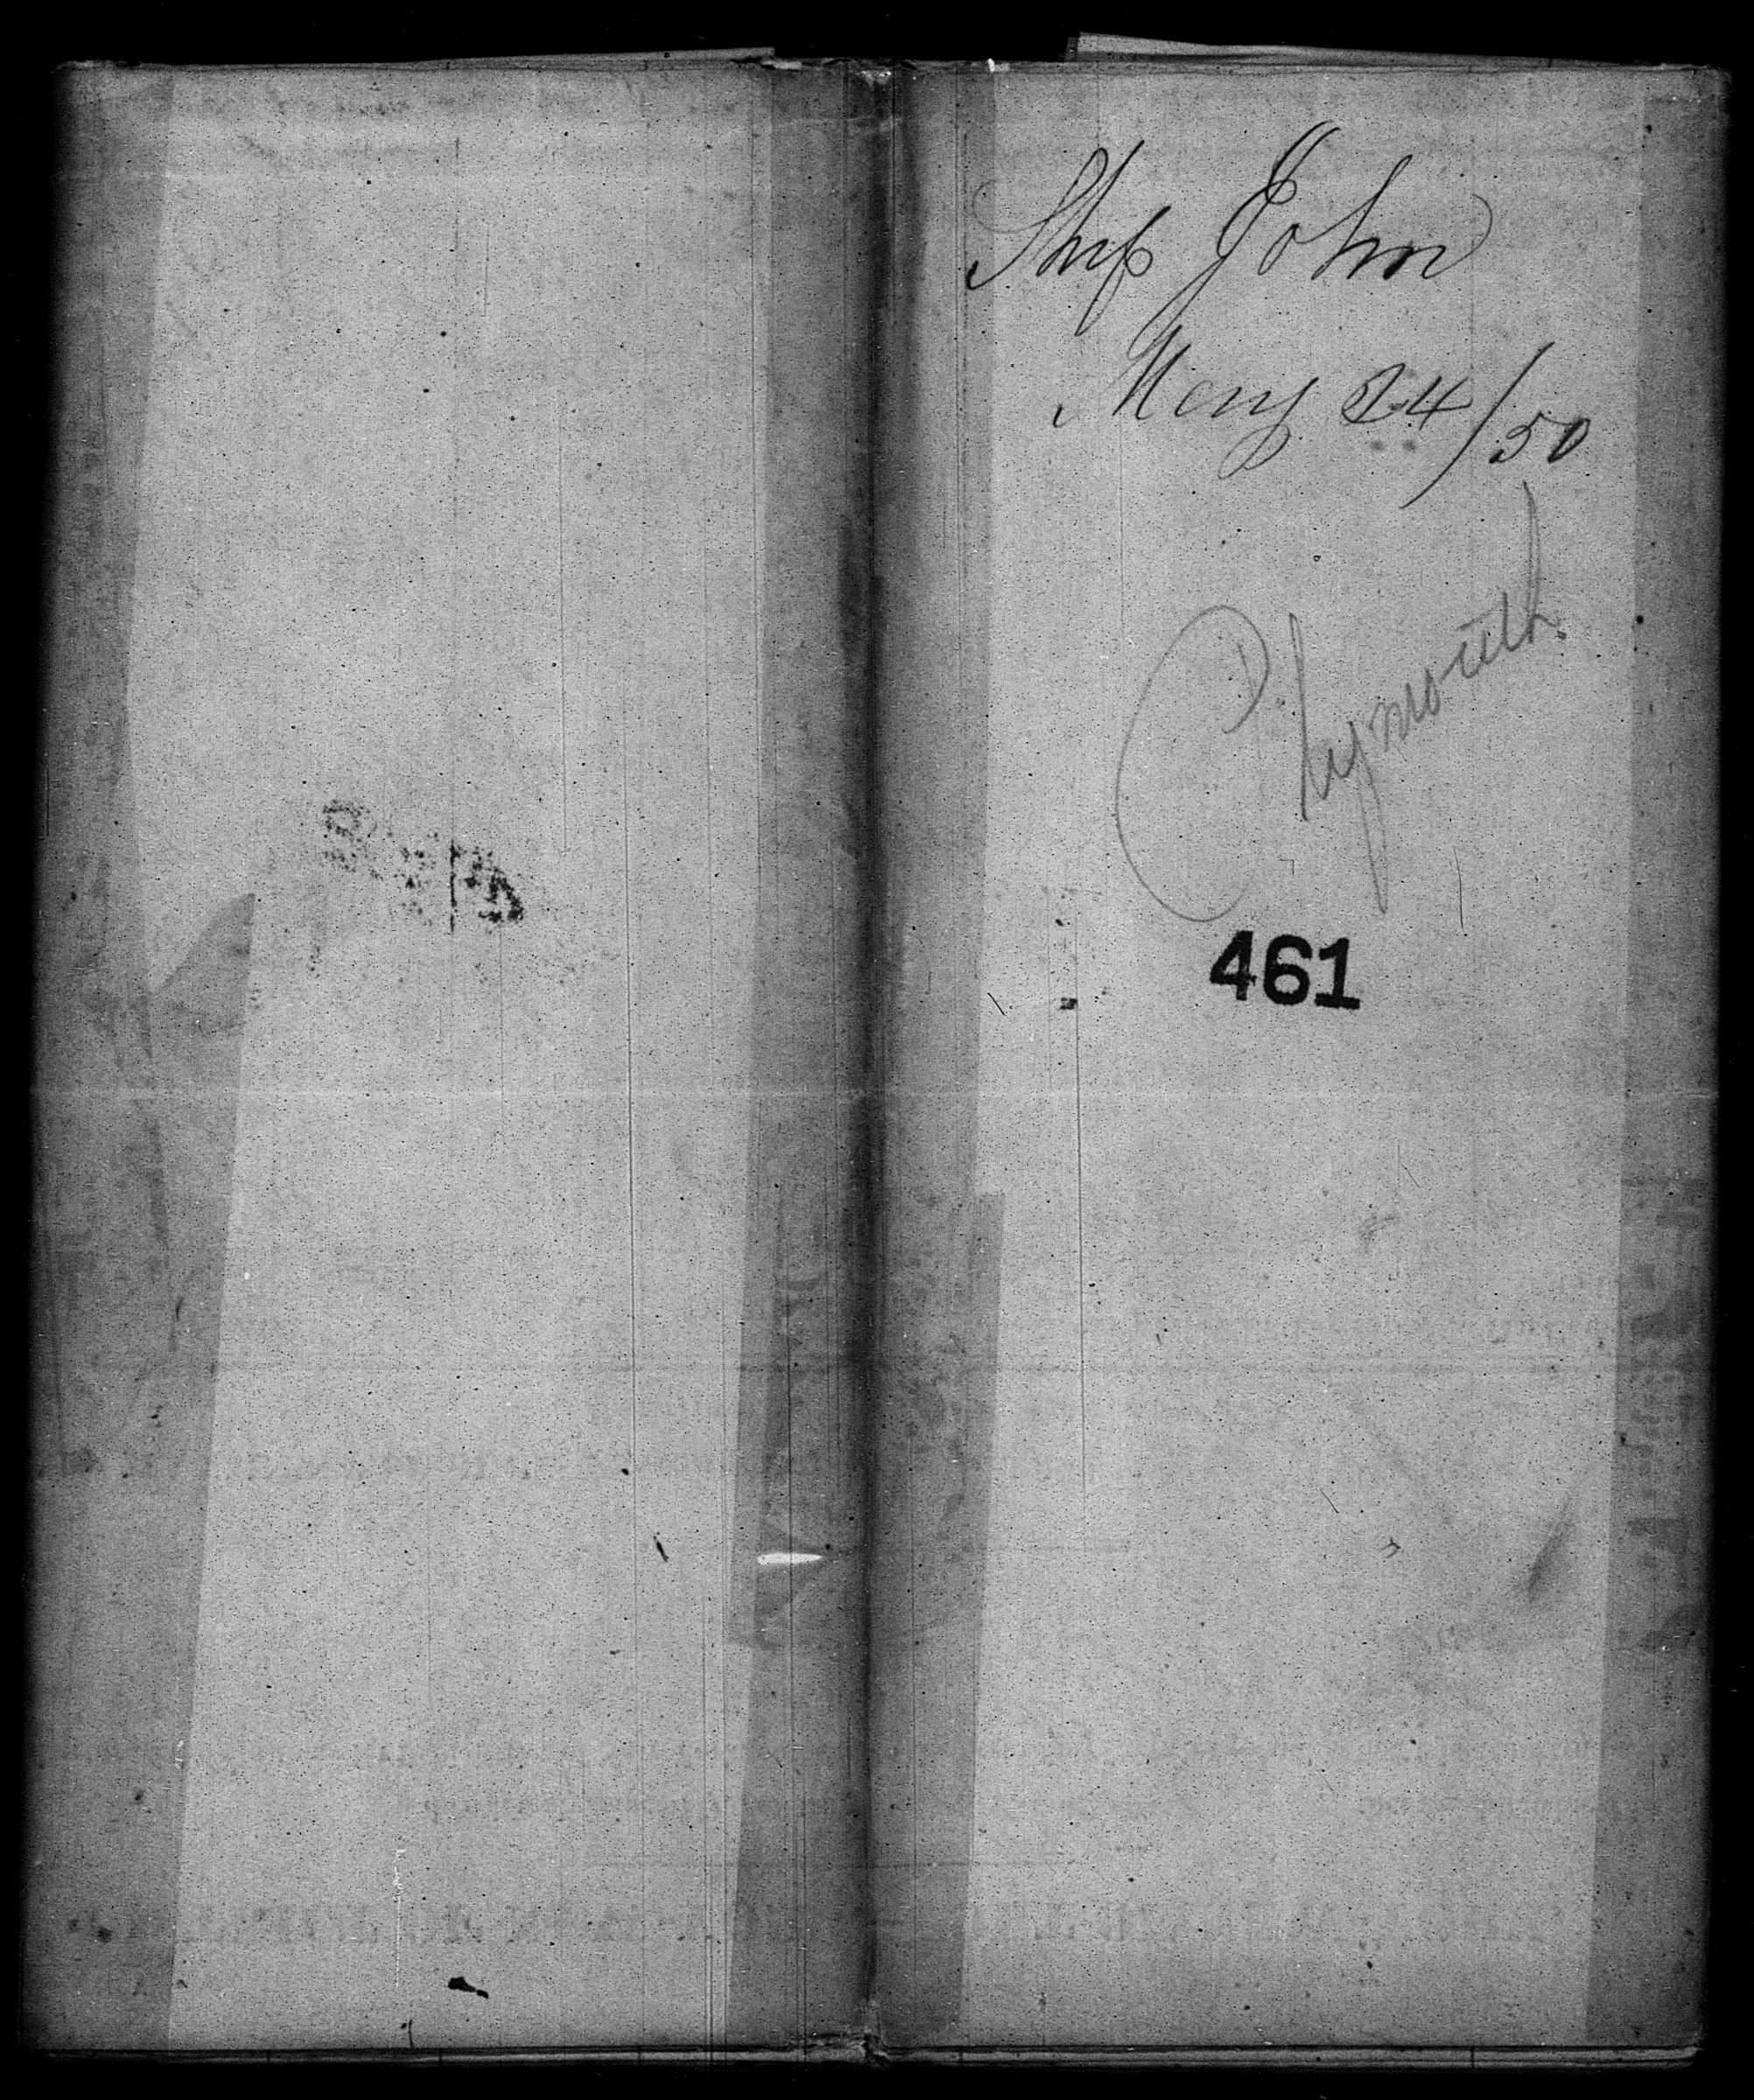 Ship John
May 24/50
Plymouth
461